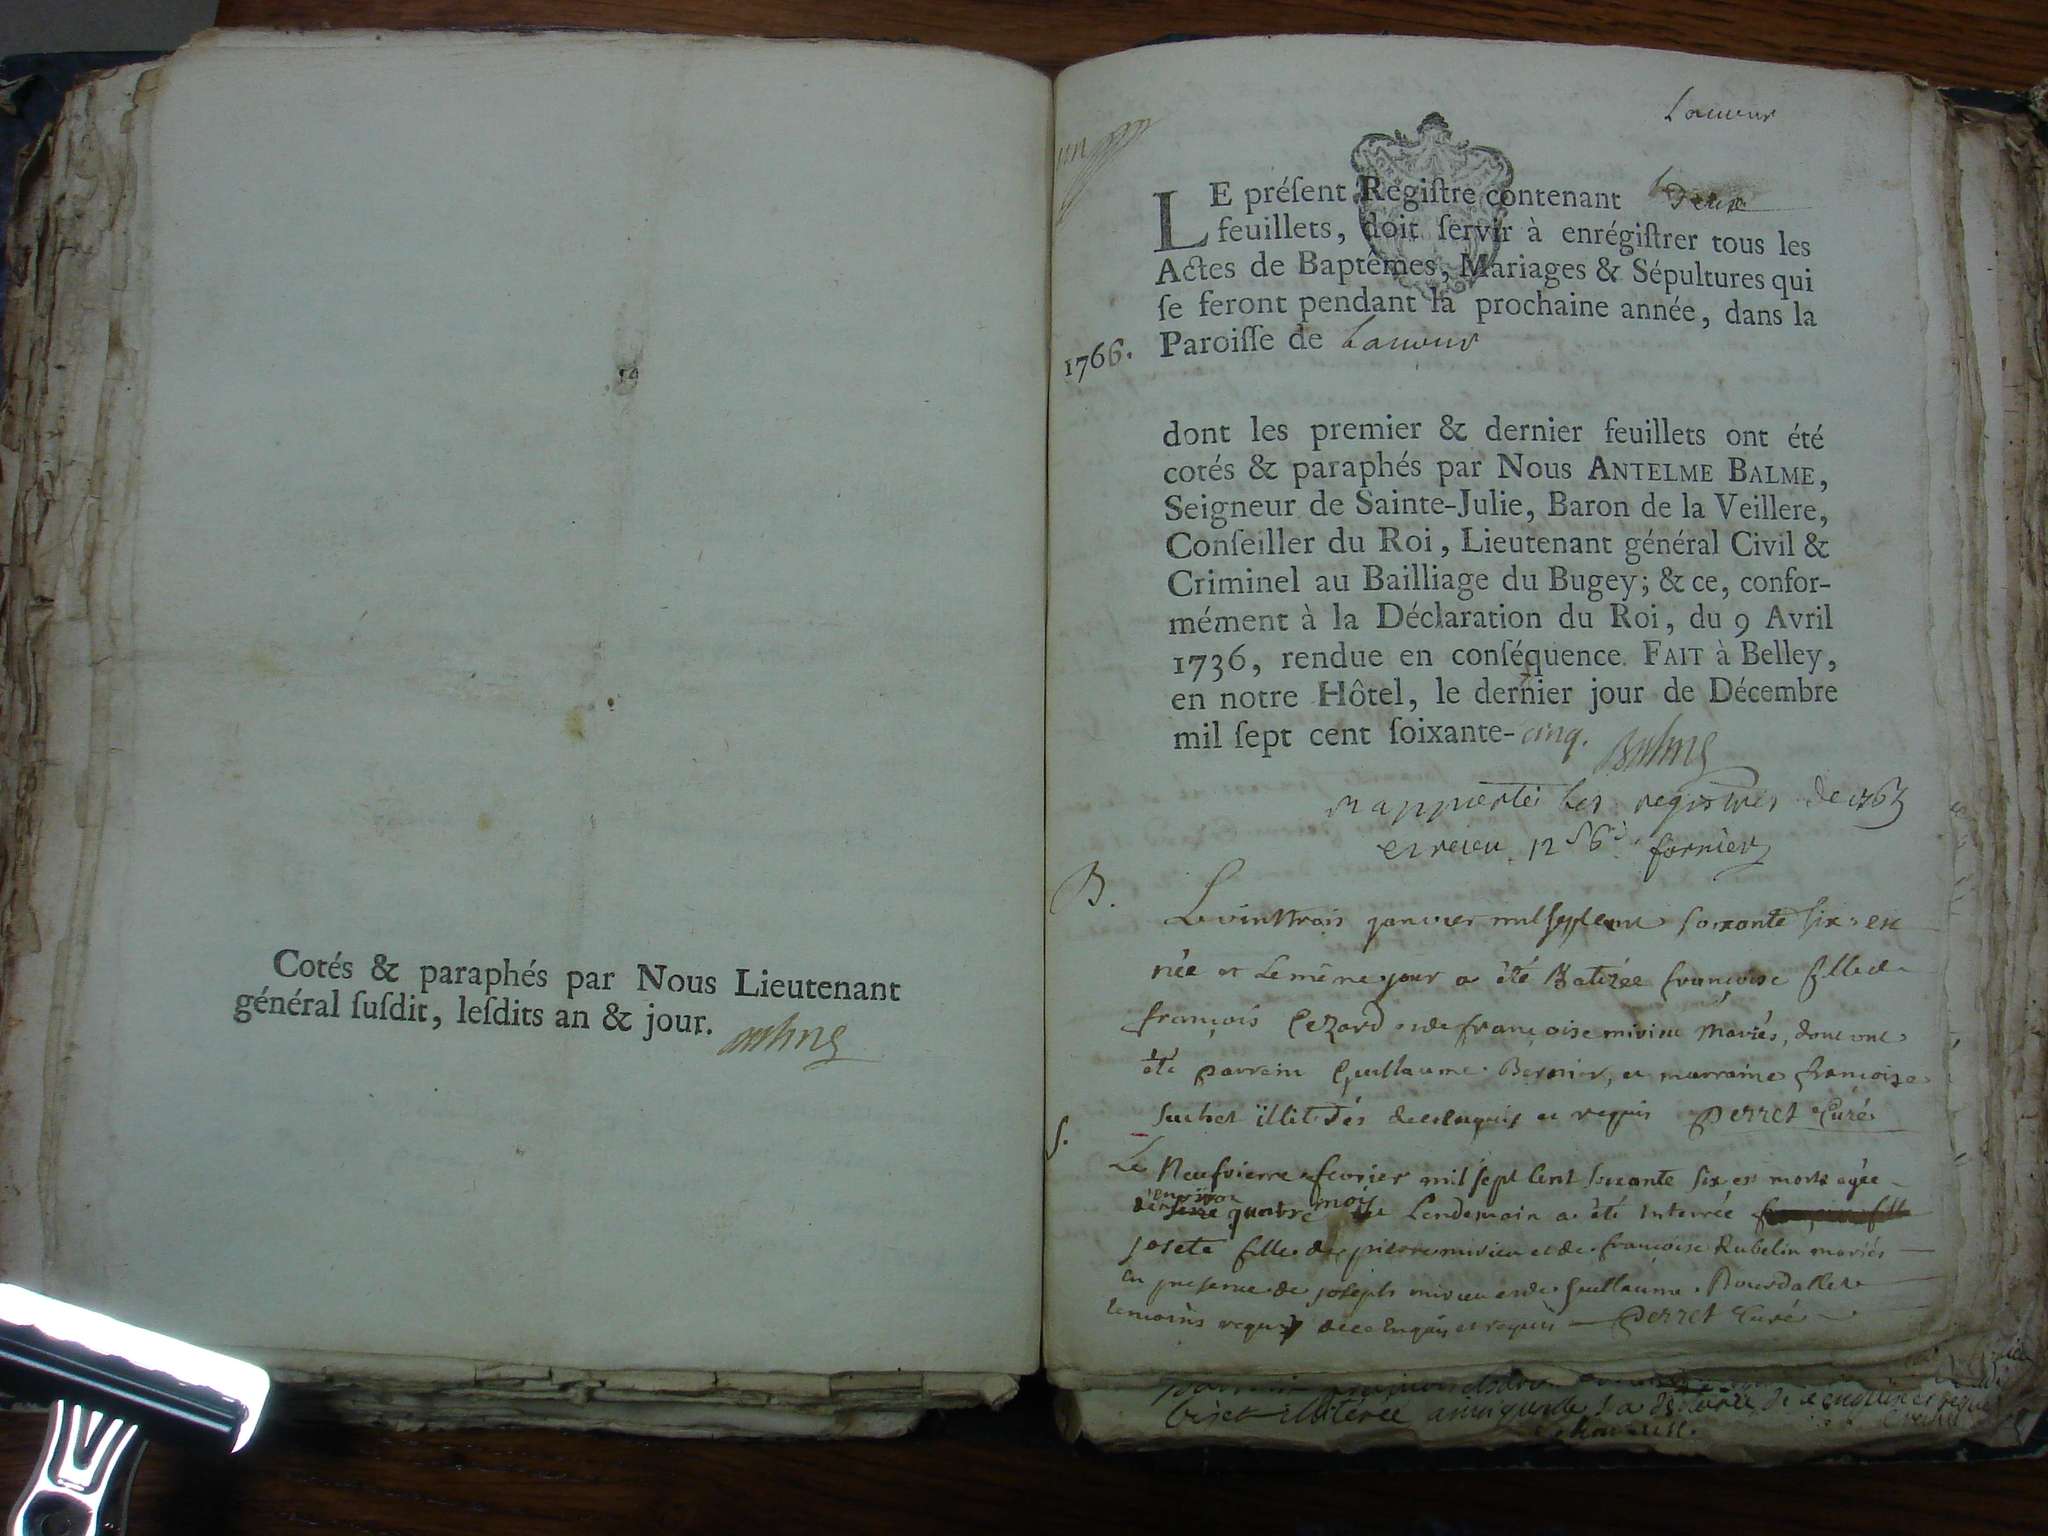 Cotés & paraphés par Nous Lieutenant
général ſuſdit, leſdits an & jour.
Balme
un
Lauour
LE préſent Regiſtre contenant Deux
feuillets, doit ſervir à enrégiſtrer tous les
Actes de Baptêmes, Mariages & Sépultures qui
ſe feront pendant la prochaine année, dans la
1766. Paroiſſe de Lauour
dont les premier & dernier feuillets ont été
cotés & paraphés par Nous ANTELME BALME,
Seigneur de Sainte-Julie, Baron de la Veillere,
Conſeiller du Roi, Lieutenant général Civil &
Criminel au Bailliage du Bugey; & ce, confor-
mément à la Déclaration du Roi, du 9 Avril
1736, rendue en conſéquence. FAIT à Belley,
en notre Hôtel, le dernier jour de Décembre
mil ſept cent ſoixante-cinq. Balme
rapporté les registres de 1765
et receu 12 s 6 d fornier
B. Le vinttrois janvier mil sept cent soixante six est
née et le même jour a été Batizée françoise fille de
françois Cezard et de françoise mivieu mariés, dont ont
été parrein Guillaume Bernier, et marraine françoise
Suchet illitérés de ce enquis et requis Perret Curé
S. Le Neufvieme fevrier mil sept cent soixante six est morte agée
environ mois
quatre Lendemain a été enterrée
josete fille de pierre mivieu et de françoise Rubelin mariés
en presence de joseph mivieu et de Guillaume Bourdallet
temoins requis de ce enquis et requis Perret Curé
illitérée